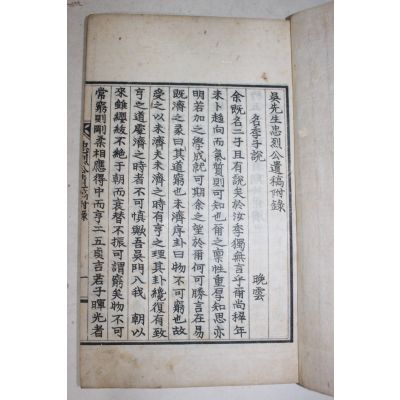 吳先生忠烈公遺稿附錄
名季子說
晚雲
余旣名二子且有說矣於汝季獨無言乎爾尙穉年
未卜趨向而氣質則可知也爾之禀性重厚知思亦
明若加之學成就可期余之望於爾何可勝言在易
旣濟之彖曰其道窮也未濟序卦曰物不可窮也故
受之以未濟夫未濟有亨之理其卦纔復有致
亨之道塵濟之時者不可愼歟吾吳門入我 朝以
來雖纓紱不絶于朝而衰替不振可謂窮矣物不可
常窮則剛柔相應得中而亨二五爻言君子暉光者